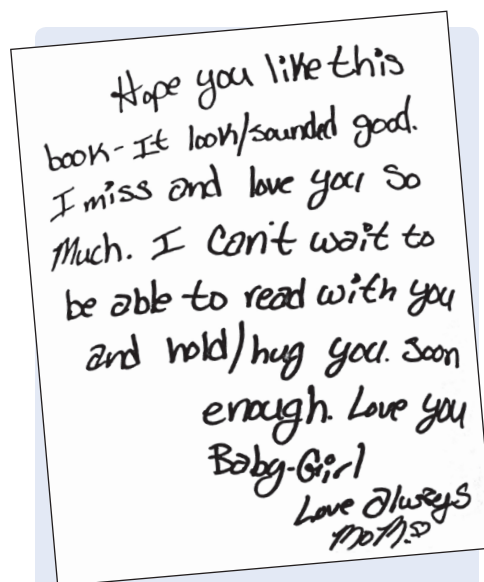 Hope you like this
book - It look/sounded good.
I miss and love you so
Much. I can't wait to
be able to read with you
and hold/hug you. Soon
enough. Love you
Baby-Girl
Love always
MoM.♡